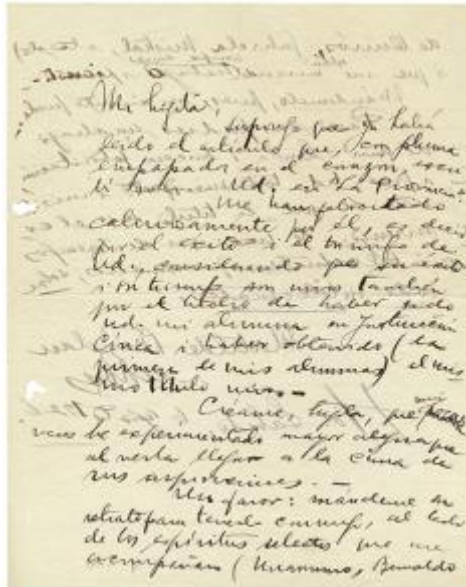 Mi hijita,
supongo que ya habrá
leido el articulo que, con pluma
empapada en el corazon, escri
bi sobre Ud. en "La Provincia".
Me han felicitado
calurosamente por él, es decir
por el exito i el triunfo de
Ud., considerando que su exito
i su triunfo son mios tambien
por el hecho de haber sido
Ud. mi alumna en Instruccion
Civica i haber obtenido (la
primera de mis alumnas) el mis
mo titulo mio.-
Créame, hijita, que
veces he experimentado mayor alegria que
al verla llegar a la cima de
sus aspiraciones. -
Un favor: mandeme su
retrato para tenerlo conmigo, al lado
de los espiritus selectos que me
acompañan (Unamuno, Bernaldo